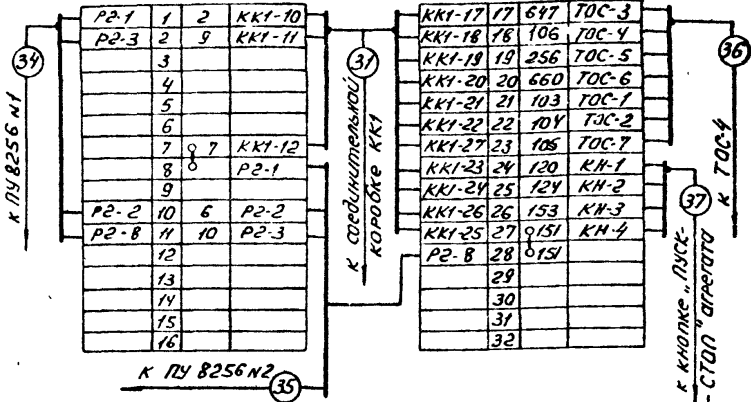 Р2-1 1 2 КК1-10
Р2-3 2 9 КК1-11
3
4
5
6
7 7 КК1-12
8 Р2-1
9
Р2-2 10 6 Р2-2
Р2-8 11 10 Р2-3
12
13
14
15
16
34
к ПУ 8256 N1
к ПУ 8256 N2
35
31
к соединительной
коробке КК1
КК1-17 17 647 ТОС-3
КК1-18 18 106 ТОС-4
КК1-19 19 256 ТОС-5
КК1-20 20 660 ТОС-6
КК1-21 21 103 ТОС-1
КК1-22 22 104 ТОС-2
КК1-27 23 105 ТОС-7
КК1-23 24 120 КН-1
КК1-24 25 124 КН-2
КК1-26 26 153 КН-3
КК1-25 27 151 КН-4
Р2-8 28 151
29
30
31
32
36
к ТОС-4
37
к кнопке „Пуск-
-стоп" агрегата